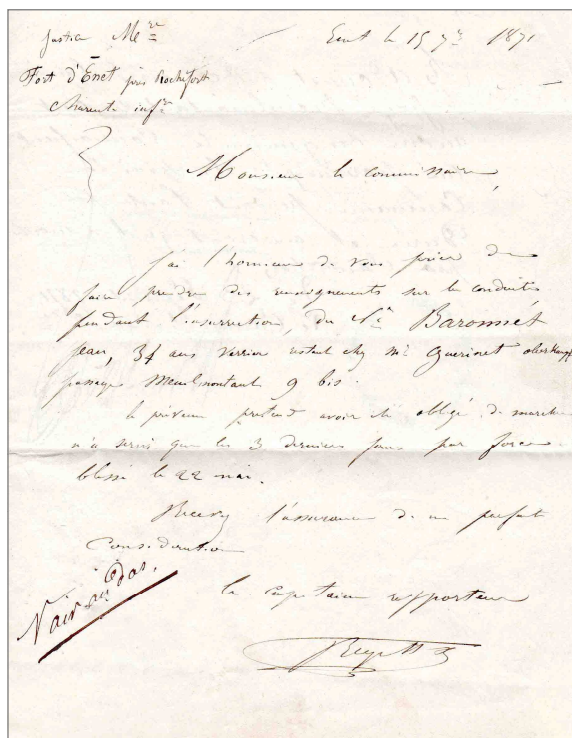 Justice Mre
Enet le 15 7re 1871
Fort d'Enet près Rochefort
Charente infre
Monsieur le Commissaire,
J'ai l'honneur de vous prier de
faire prendre des renseignements sur la conduite
pendant l'insurrection, du Sr Baronnet
Jean, 34 ans verrier restant chez Mr Guerinet oberkampf
passage Menilmontant 9 bis.
le prévenu prétend avoir été obligé de marcher
n'a servi que les 3 derniers jours par force
blessé le 22 mai.
Recevez l'assurance de ma parfaite
Considération
le Capitaine rapporteur
Voir au dos.